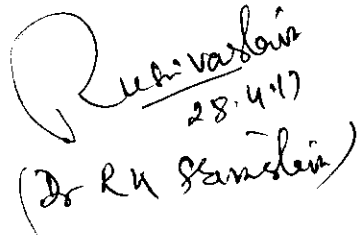 RKSrivastava
28.4.17
(Dr RK Srivastava)